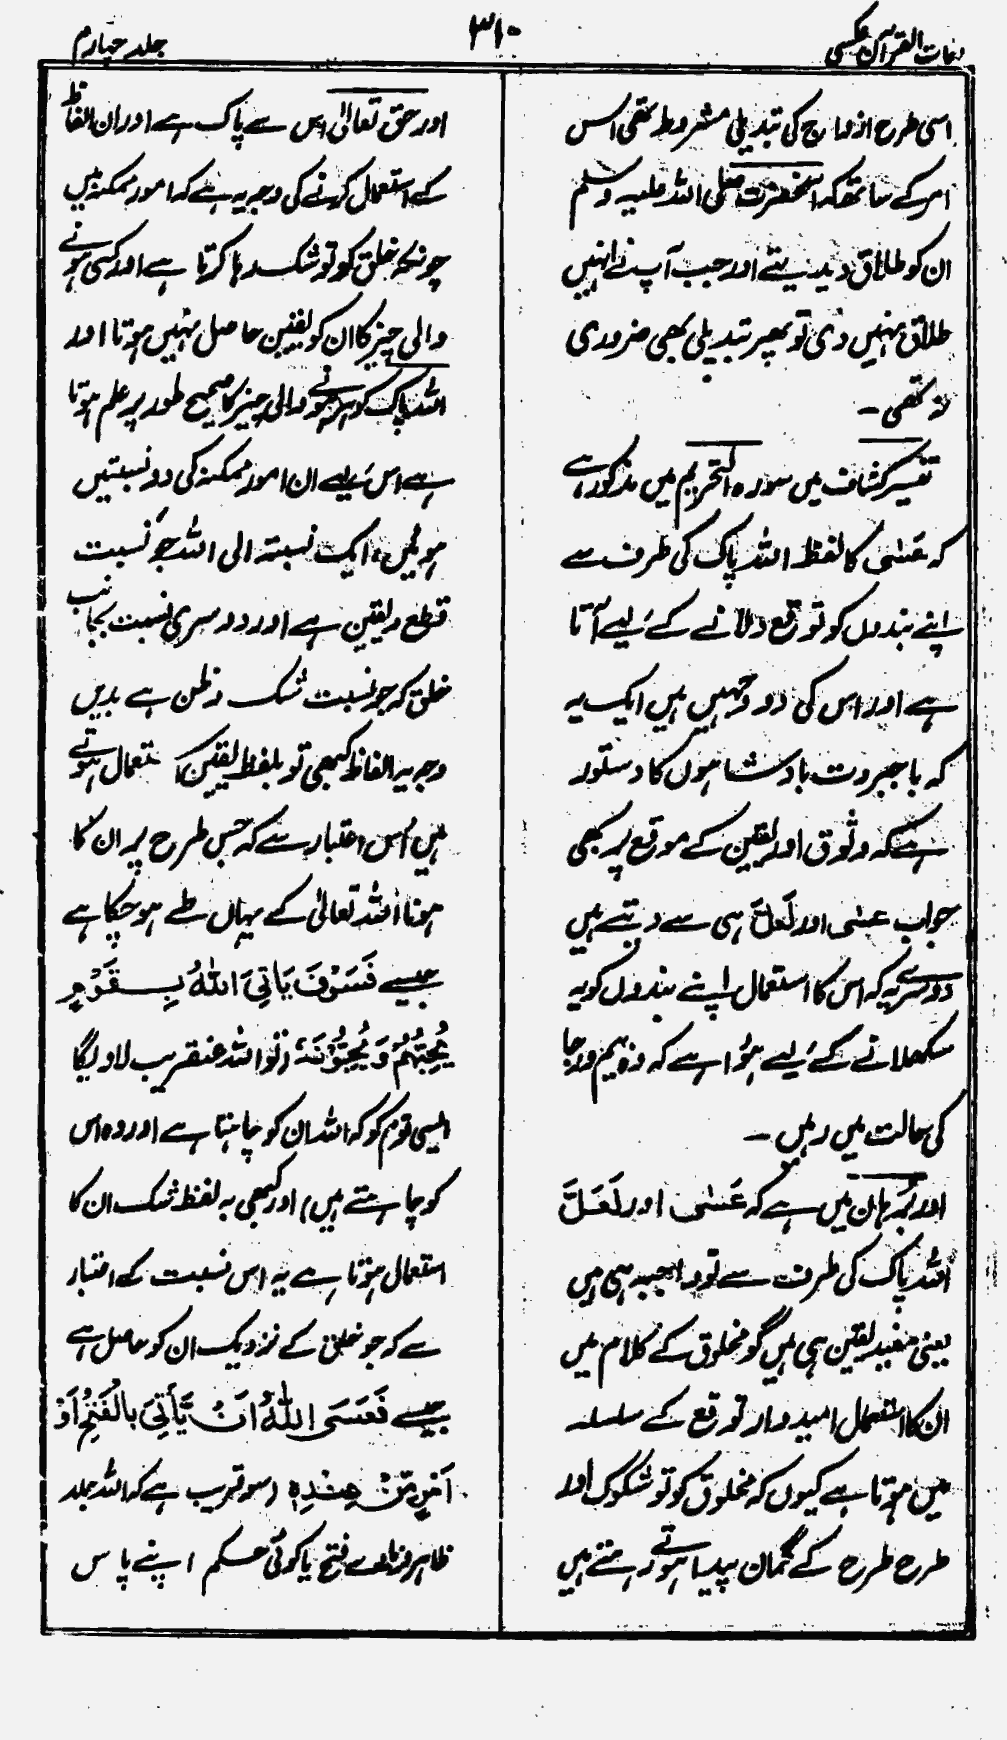 لغات القرآن عکسی
۳۱۰
جلد چہارم
اسی طرح ازواج کی تبدیلی مشروط تھی اس
امر کے ساتھ کہ آنحضرت صلی اللہ علیہ وسلم
ان کو طلاق دیدیتے اور جب آپ نے انہیں
طلاق نہیں دی تو پھر تبدیلی بھی ضروری
نہ تھی۔
تفسیر کشاف میں سورہ التحریم میں مذکور ہے
کہ عَسٰی کا لفظ اللہ پاک کی طرف سے
اپنے بندوں کو توقع دلانے کے لیے آتا
ہے اور اس کی دو وجہیں ہیں ایک یہ
کہ باجبروت بادشاہوں کا دستور
ہے کہ وثوق اور یقین کے موقع پر بھی
جواب عسٰی اور لَعَلَّ ہی سے دیتے ہیں
دوسرے یہ کہ اس کا استعمال اپنے بندوں کو یہ
سکھلانے کے لیے ہوا ہے کہ وہ بیم ورجا
کی حالت میں رہیں۔
اور بُرہان میں ہے کہ عَسٰی اور لَعَلَّ
اللہ پاک کی طرف سے تو واجبہ ہی ہیں
یعنی مفید یقین ہی ہیں گو مخلوق کے کلام میں
ان کا استعمال امید وار توقع کے سلسلہ
میں ہوتا ہے کیوں کہ مخلوق کو تو شکوک اور
طرح طرح کے گمان پیدا ہوتے رہتے ہیں
اور حق تعالیٰ اس سے پاک ہے اور ان الفاظ
کے استعمال کرنے کی وجہ یہ ہے کہ امور ممکنہ میں
چونکہ خلق کو تو شک رہا کرتا ہے اور کسی ہونے
والی چیز کا ان کو یقین حاصل نہیں ہوتا اور
اللہ پاک کو ہر ہونے والی چیز کا صحیح طور پر علم ہوتا
ہے اس لیے ان امور ممکنہ کی دو نسبتیں
ہوئیں، ایک نسبتہ الی اللہ جو نسبت
قطع و یقین ہے اور دوسری نسبت بجانب
خلق کہ جو نسبت شک و ظن ہے بدیں
وجہ یہ الفاظ کبھی تو بلفظ یقین استعمال ہوتے
ہیں اُس اعتبار سے کہ جس طرح پر ان کا
ہونا اللہ تعالیٰ کے یہاں طے ہو چکا ہے
جیسے فَسَوْفَ یَاْتِی اللّٰہُ بِقَوْمٍ
یُّحِبُّہُمْ وَیُحِبُّوْنَہٗ (تو اللہ عنقریب لاویگا
ایسی قوم کو کہ اللہ ان کو چاہتا ہے اور وہ اس
کو چاہتے ہیں) اور کبھی بہ لفظ شک ان کا
استعمال ہوتا ہے یہ اس نسبت کے اعتبار
سے کہ جو خلق کے نزدیک ان کو حاصل ہے
جیسے فَعَسَی اللّٰہُ اَنْ یَّأْتِیَ بِالْفَتْحِ اَوْ
اَمْرٍ مِّنْ عِنْدِہٖ (سو قریب ہے کہ اللہ جلد
ظاہر فرماوے فتح یا کوئی حکم اپنے پاس